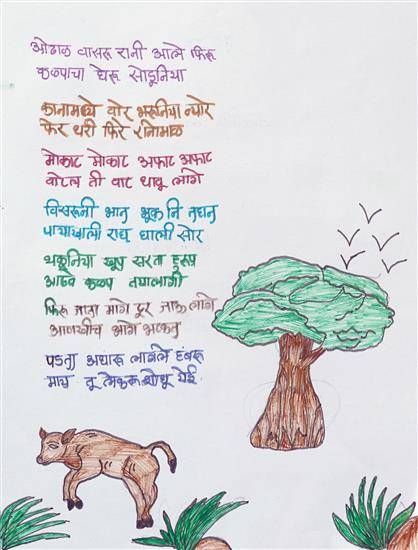 ओढाळ वासरू रानी आले फिरू
कळपाचा घेरू सोडुनिया
कानामध्ये वारं भरूनिया न्यारे
फेर धरी फिरे रानोमाळ
मोकाट मोकाट अफाट अफाट
वाटेल ती वाट धावू लागे
विसरूनी भान भूक नि तहान
पायाखाली रान घाली सारे
थकूनिया खूप सरता हुरूप
आठवे कळप तयालागी
फिरू जाता मागे दूर जाऊ लागे
आणखीच आगे भटकत
पडता अंधारू लागले हंबरू
माय तू लेकरू शोधू येई